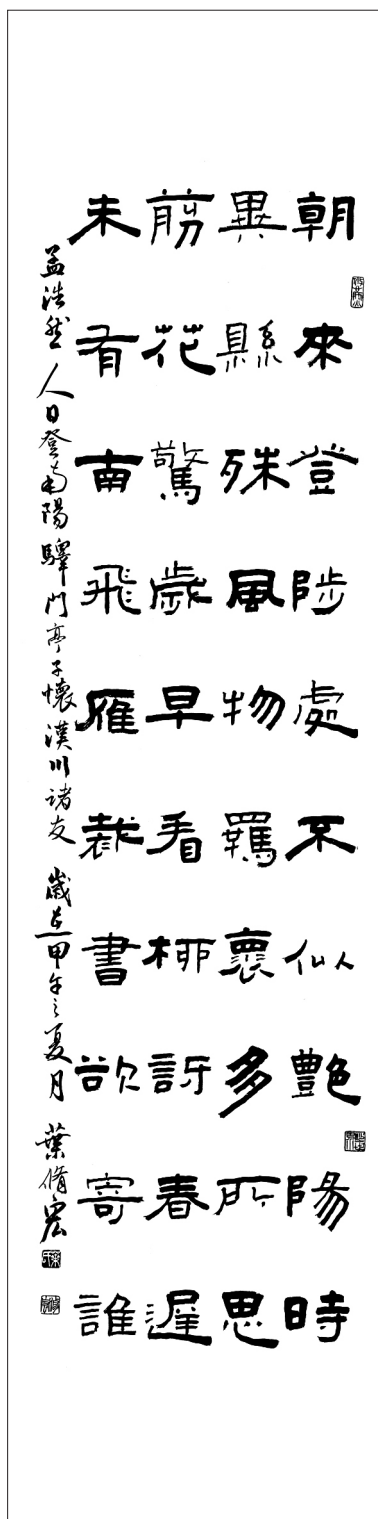 朝來登陟處不似艷陽時
異縣殊風物羈懷多所思
剪花驚歲早看柳訝春遲
未有南飛雁裁書欲寄誰
孟浩然人日登南陽驛門亭子懷漢川諸友 歲在甲午之夏月 葉脩宏